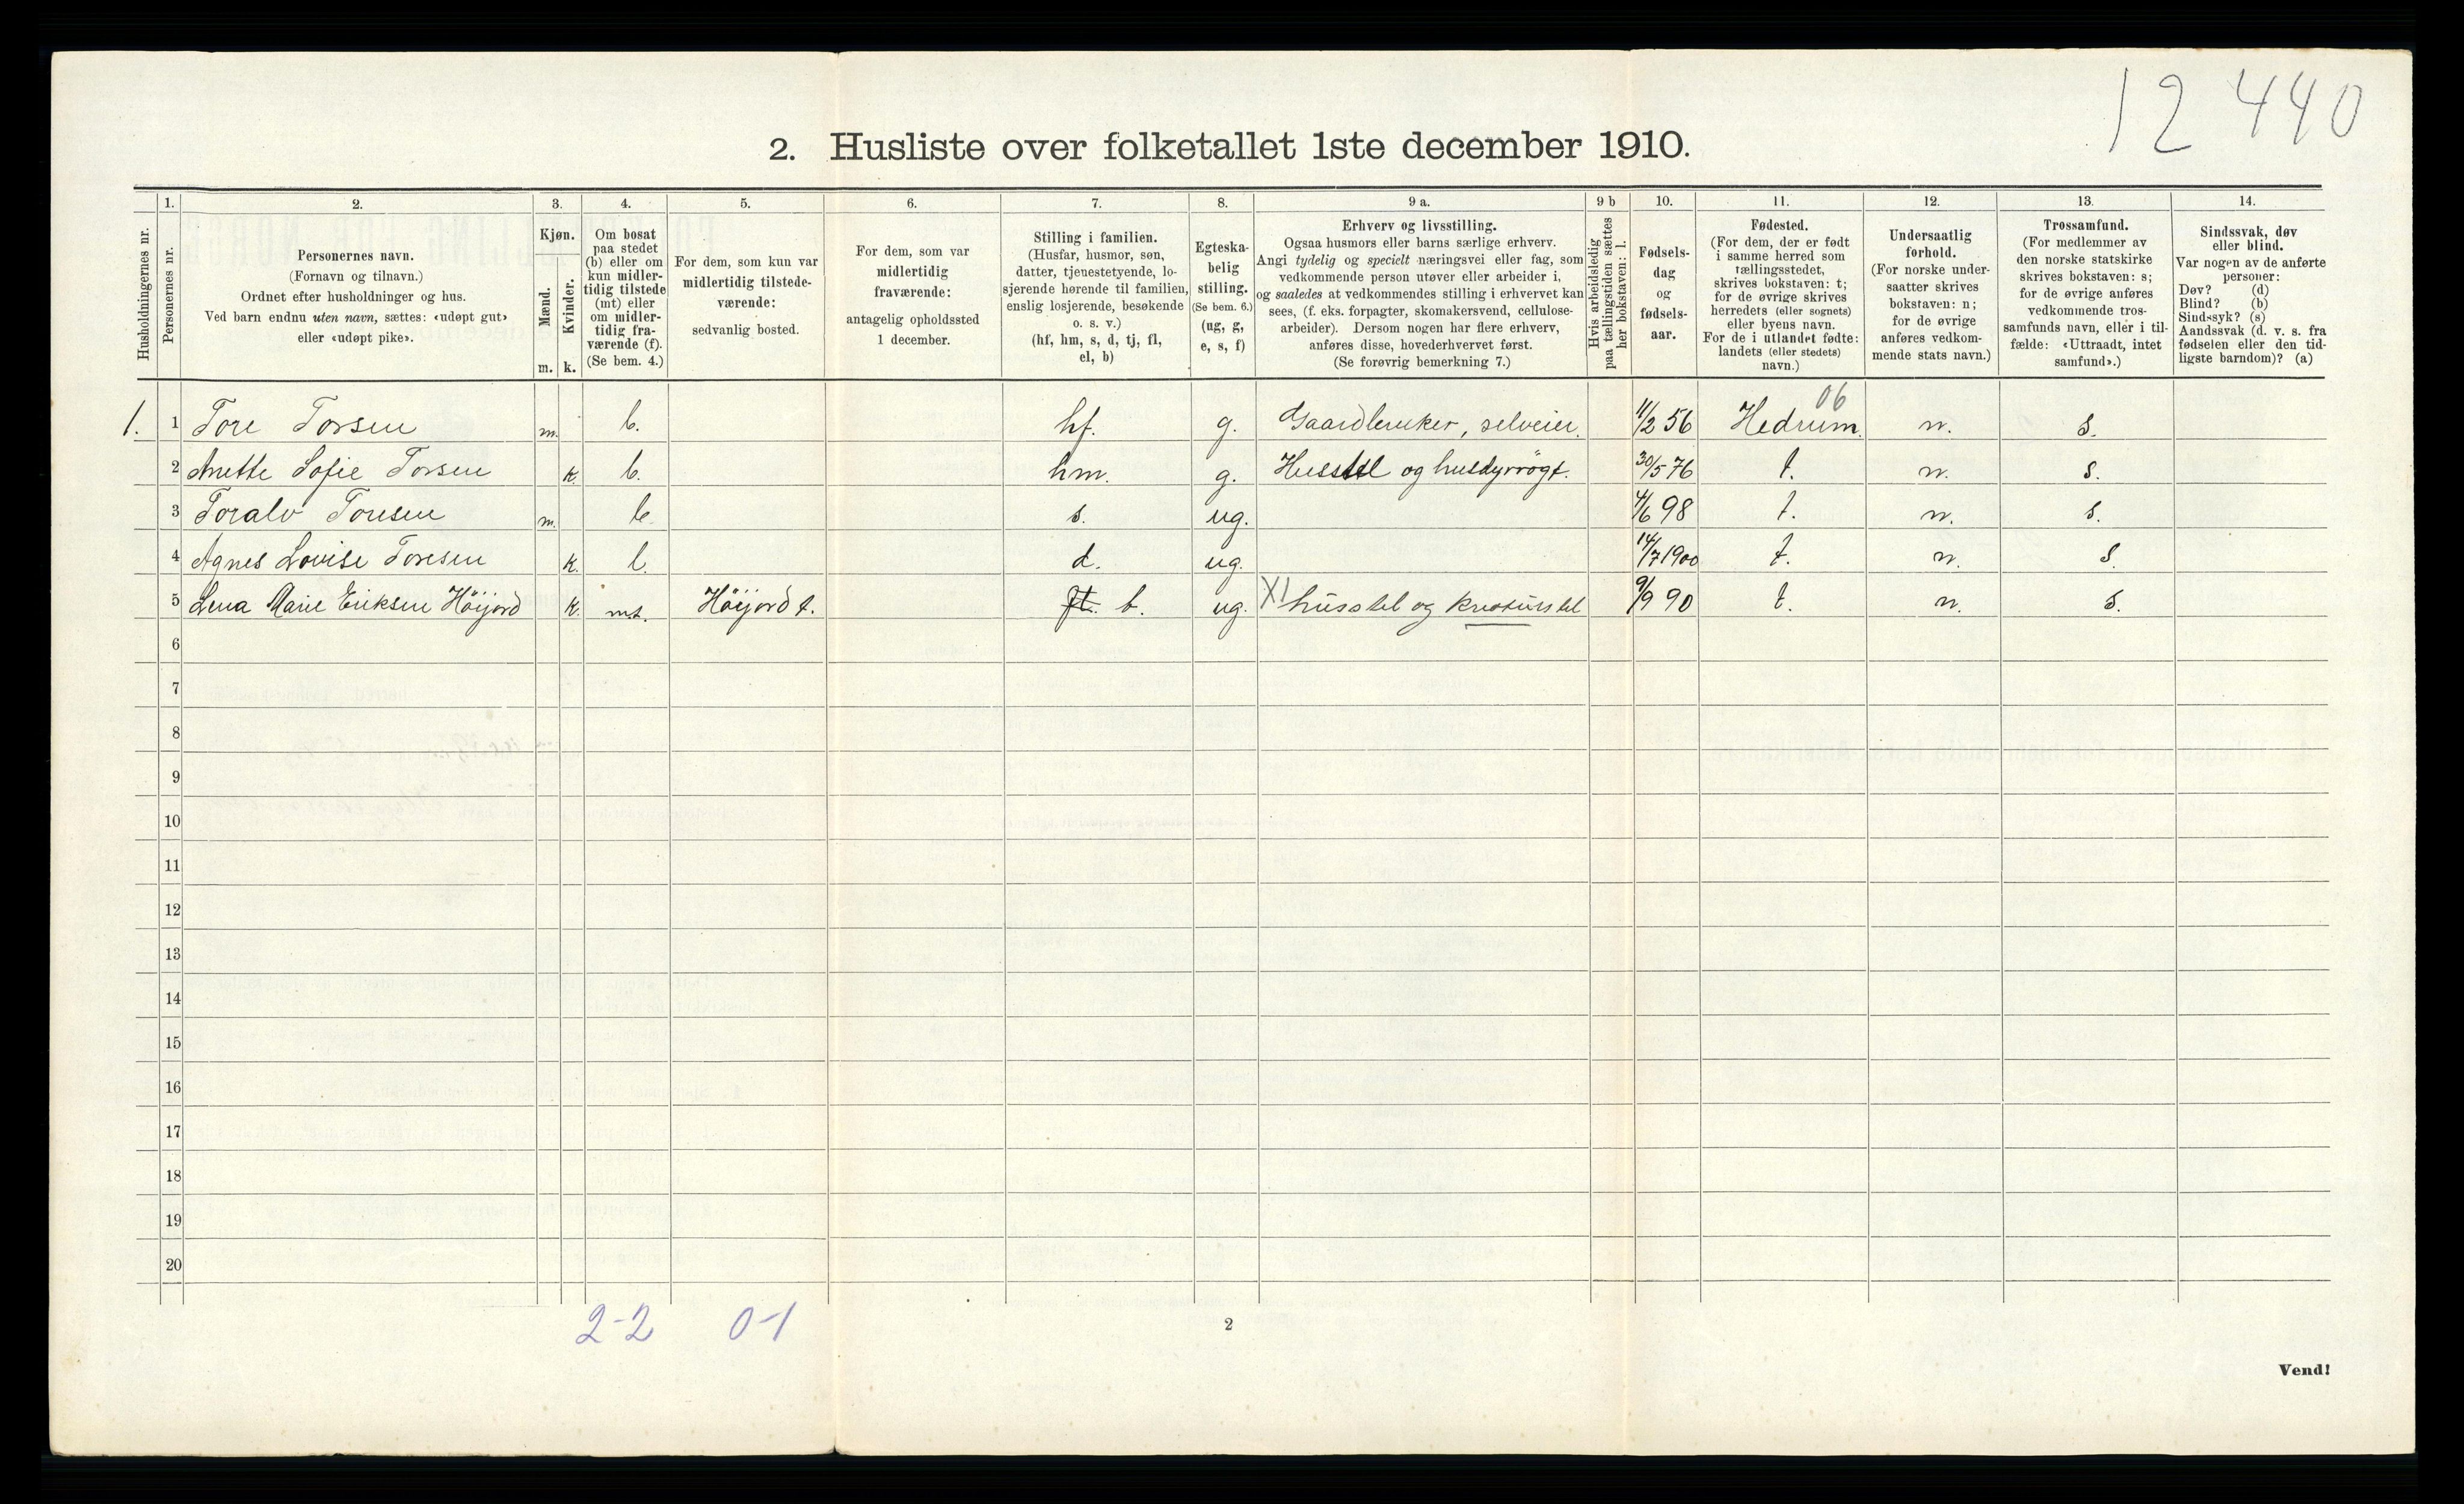 12 440
2. Husliste over folketallet 1ste december 1910.
Husholdningernes nr.
1.
Personernes nr.
2.
Personernes navn.
(Fornavn og tilnavn.)
Ordnet efter husholdninger og hus.
Ved barn endnu uten navn, sættes: «udøpt gut»
eller «udøpt pike».
3.
Kjøn.
Mænd.
Kvinder.
m. k.
4.
Om bosat
paa stedet
(b) eller om
kun midler-
tidig tilstede
(mt) eller
om midler-
tidig fra-
værende (f).
(Se bem. 4.)
5.
For dem, som kun var
midlertidig tilstede-
værende:
sedvanlig bosted.
6.
For dem, som var
midlertidig
fraværende:
antagelig opholdssted
1 december.
7.
Stilling i familien.
(Husfar, husmor, søn,
datter, tjenestetyende, lo-
sjerende hørende til familien,
enslig losjerende, besøkende
o. s. v.)
(hf, hm, s, d, tj, fl,
el, b)
8.
Egteska-
belig
stilling.
(Se bem. 6.)
(ug, g,
e, s, f)
9 a.
Erhverv og livsstilling.
Ogsaa husmors eller barns særlige erhverv.
Angi tydelig og specielt næringsvei eller fag, som
vedkommende person utøver eller arbeider i,
og saaledes at vedkommendes stilling i erhvervet kan
sees, (f. eks. forpagter, skomakersvend, cellulose-
arbeider). Dersom nogen har flere erhverv,
anføres disse, hovederhvervet først.
(Se forøvrig bemerkning 7.)
9 b
Hvis arbeidsledig
paa tællingstiden sættes
her bokstaven: l.
10.
Fødsels-
dag
og
fødsels-
aar.
11.
Fødested.
(For dem, der er født
i samme herred som
tællingsstedet,
skrives bokstaven: t;
for de øvrige skrives
herredets (eller sognets)
eller byens navn.
For de i utlandet fødte:
landets (eller stedets)
navn.)
12.
Undersaatlig
forhold.
(For norske under-
saatter skrives
bokstaven: n;
for de øvrige
anføres vedkom-
mende stats navn.)
13.
Trossamfund.
(For medlemmer av
den norske statskirke
skrives bokstaven: s;
for de øvrige anføres
vedkommende tros-
samfunds navn, eller i til-
fælde: «Uttraadt, intet
samfund».)
14.
Sindssvak, døv
eller blind.
Var nogen av de anførte
personer:
Døv? (d)
Blind? (b)
Sindssyk? (s)
Aandssvak (d. v. s. fra
fødselen eller den tid-
ligste barndom)? (a)
06
1. 1 Tore Torsen m. b. hf. g. Gaardbruker, selveier. 11/2 56 Hedrum. n. s.
2 Anette Sofie Torsen k. b. hm. g. Husstel og husdyrrøgt. 30/5 76 t. n. s.
3 Toralv Toresen m. b. s. ug. 4/6 98 t. n. s.
4 Agnes Lovise Toresen k. b. d. ug. 14/7 1900 t. n. s.
5 Lena Marie Eriksen Höijord k. mt. Höijord t. b. ug. XI husstel og kreaturstel 9/9 90 t. n. s.
6
7
8
9
10
11
12
13
14
15
16
17
18
19
20
2-2 0-1
2
Vend!